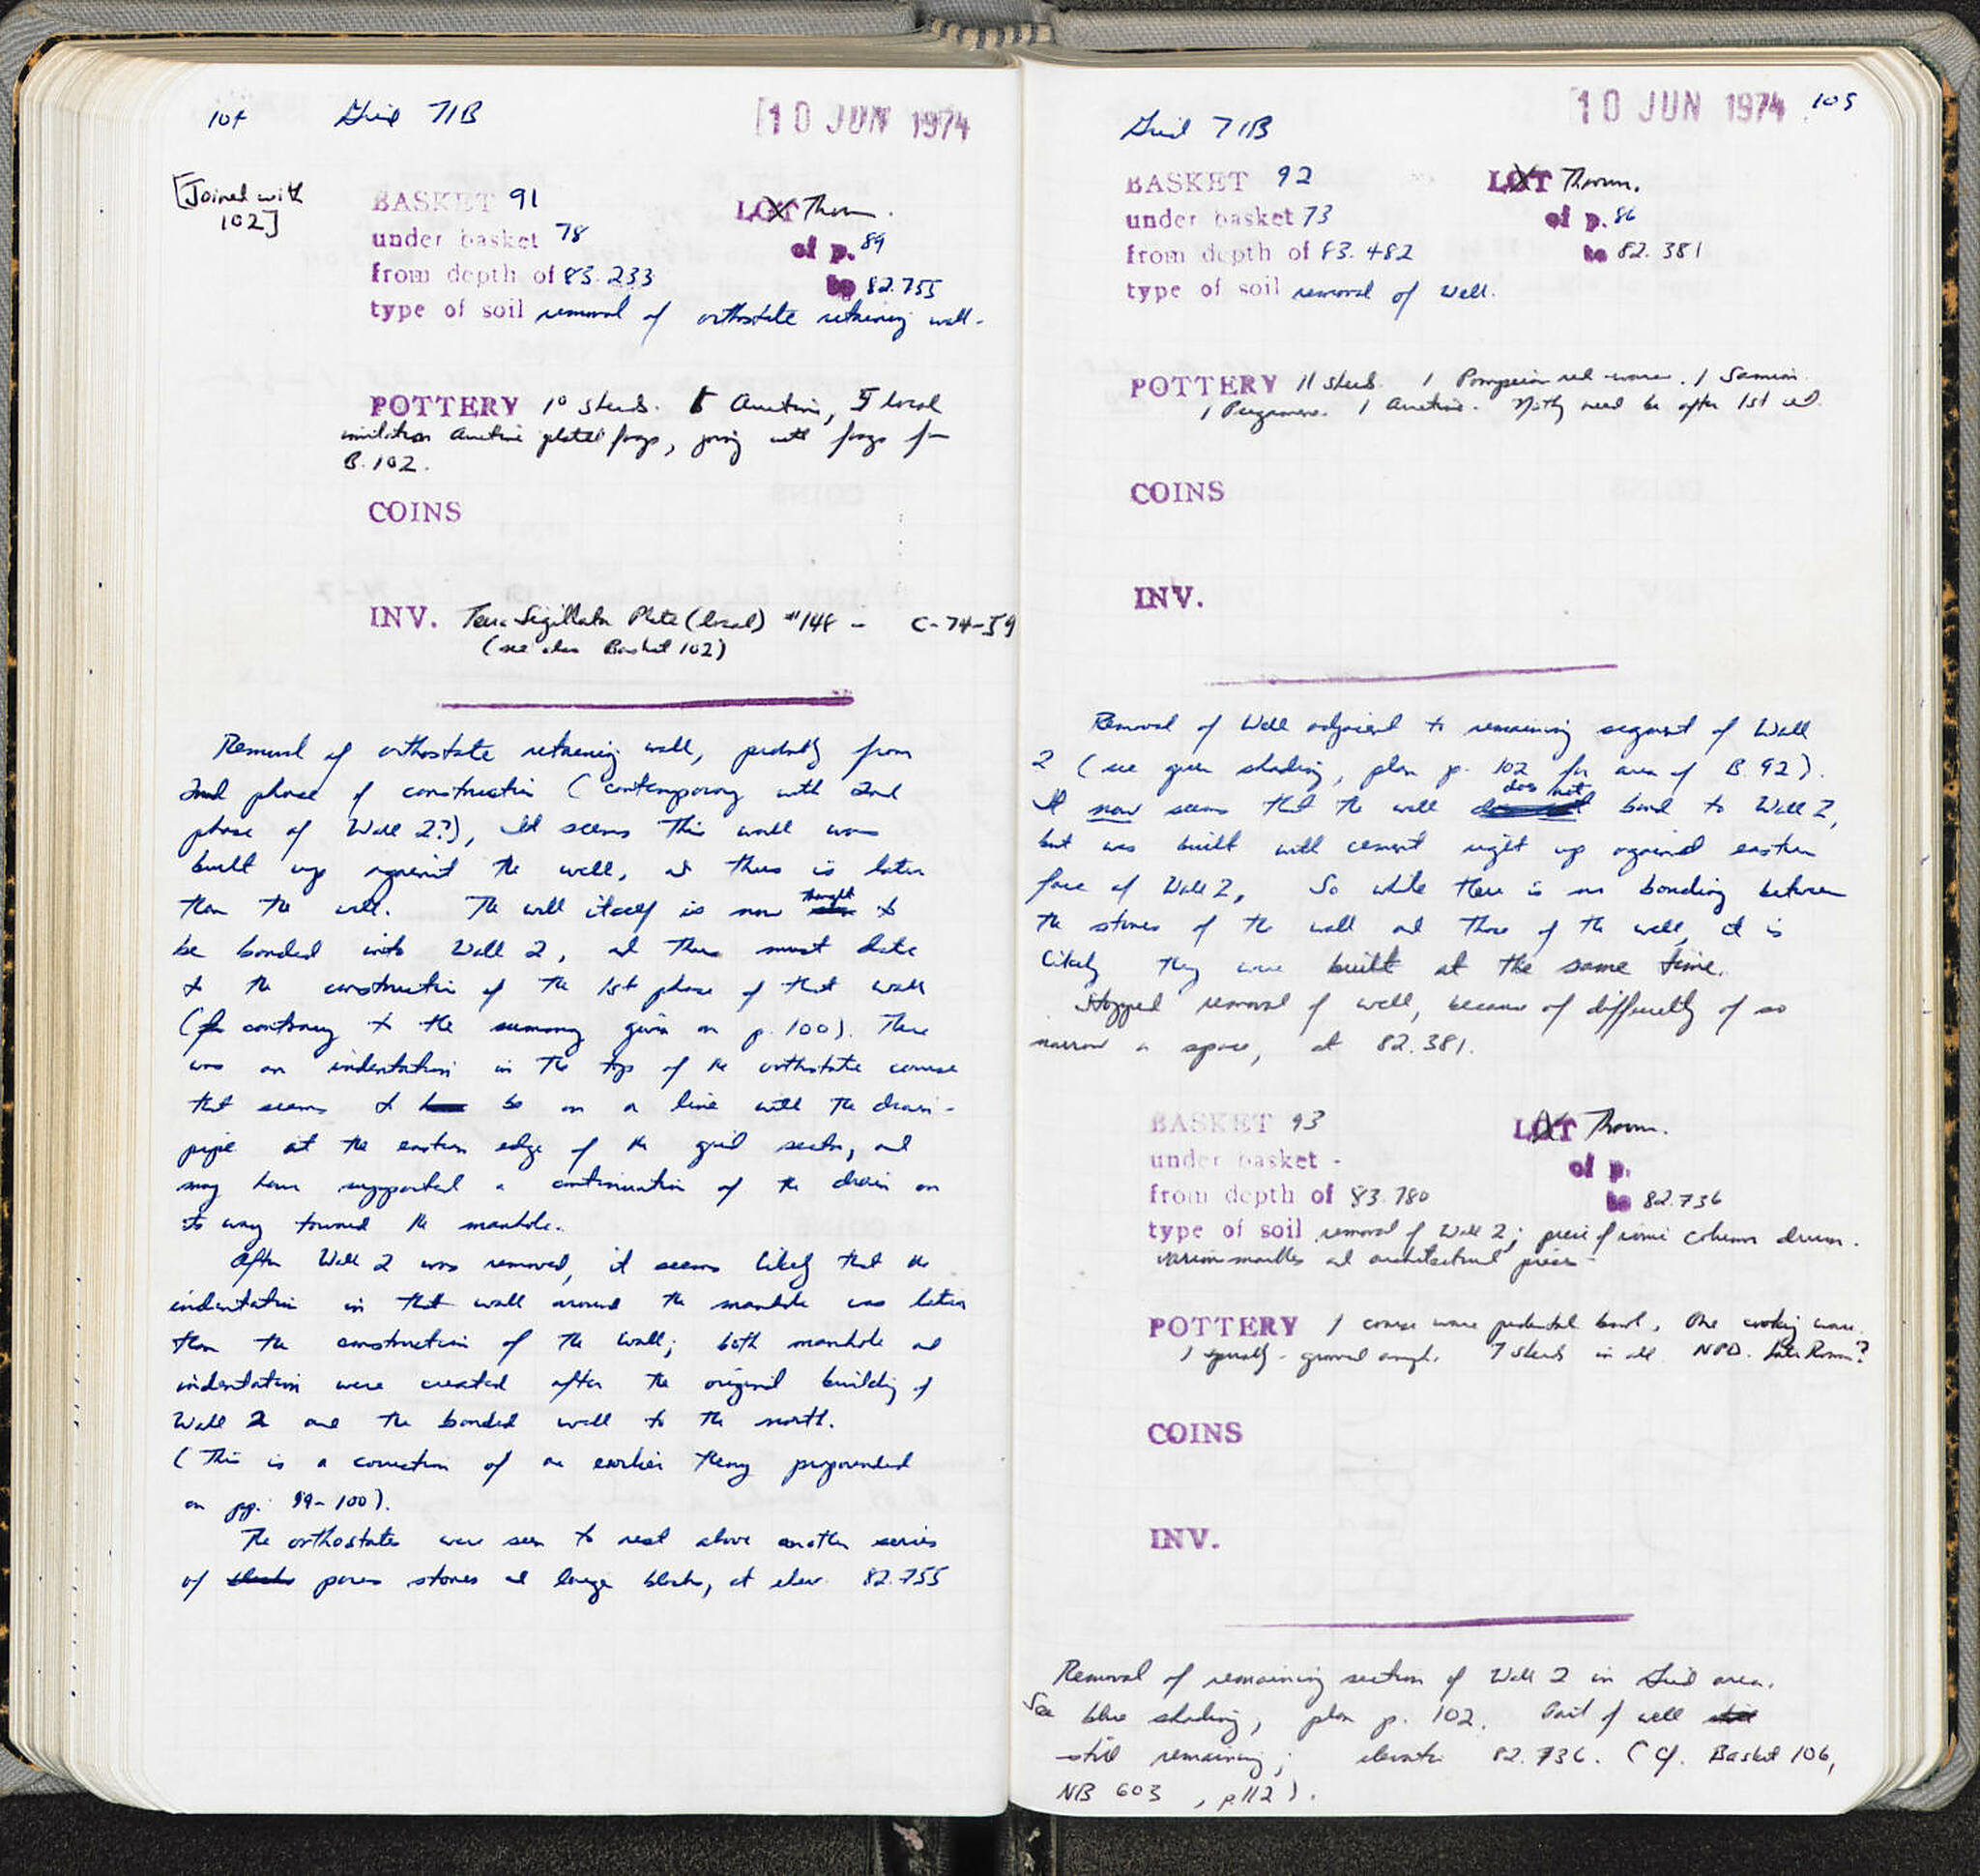 104 Grid 71B 10 JUN 1974
[Joined with
102]
BASKET 91 LOT Thrown.
under basket 78 of p. 89
from depth of 83.233 to 82.755
type of soil removal of orthostate retaining wall.
POTTERY 10 sherds. 5 Arretine, 5 local
imitation Arretine plate frags, joining with frags from
B. 102.
COINS
INV. Terra Sigillata Plate (local) #148 - C-74-59
(see also Basket 102)
Removal of orthostate retaining wall, probably from
2nd phase of construction (contemporary with 2nd
phase of Wall 2?), It seems this wall was
built up against the well, and thus is later
than the well. The well itself is now thought to
be bonded into Wall 2, and thus must date
to the construction of the 1st phase of that wall
(contrary to the summary given on p. 100). There
was an indentation in the top of the orthostate course
that seems to be on a line with the drain-
pipe at the eastern edge of the grid sector, and
may have supported a continuation of the drain on
its way toward the manhole.
After Wall 2 was removed, it seems likely that the
indentation in that wall around the manhole was later
than the construction of the wall; both manhole and
indentation were created after the original building of
Wall 2 and the bonded well to the north.
(This is a correction of an earlier theory propounded
on pp. 99-100).
The orthostates were seen to rest above another series
of poros stones and large blocks, at elev. 82.755
10 JUN 1974 105
Grid 71B
BASKET 92 LOT Thrown.
under basket 73 of p. 86
from depth of 83.482 to 82.381
type of soil removal of Well.
POTTERY 11 sherds. 1 Pompeian red-ware. 1 Samian.
1 Pergamene. 1 Arretine. Nothing need be after 1st cent.
COINS
INV.
Removal of Well adjacent to remaining segment of Wall
2 (see green shading, plan p. 102 for area of B. 92).
It now seems that the well does not bond to Wall 2,
but was built with cement right up against eastern
face of Wall 2. So while there is no bonding between
the stones of the wall and those of the well, it is
likely they were built at the same time.
Stopped removal of well, because of difficulty of so
narrow a space, at 82.381.
BASKET 93 LOT Thrown.
under basket - of p.
from depth of 83.780 to 82.736
type of soil removal of Wall 2; piece of ionic column drum.
various marbles and architectural pieces -
POTTERY 1 coarse ware pedestal bowl. One cooking ware.
1 spirally-grooved amph. 7 sherds in all NPD. Late Roman?
COINS
INV.
Removal of remaining section of Wall 2 in Grid area.
See blue shading, plan p. 102. Part of well
still remaining; elevation 82.736. (Cf. Basket 106,
NB 603, p. 112).